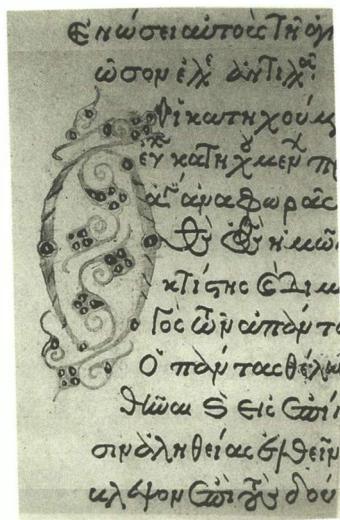 Ἑνώσει αὐτοὺς τῇ ἁγι
ῶσον ἐλέ ἀντιλ
Οἱ κατηχούμ
εὐχ κατηχουμέν πρ
ἁγ ἀναφωρᾶς
Θς ὁ Θς ἡμῶ
κτίστης ὁ δημ
γὸς τῶν ἁπάντ
Ὁ πάντας θέλω
θῆναι καὶ εἰς ἐπί
σιν ἀληθείας ἐλθεῖν
βλεψον ἐπὶ τοὺς δού